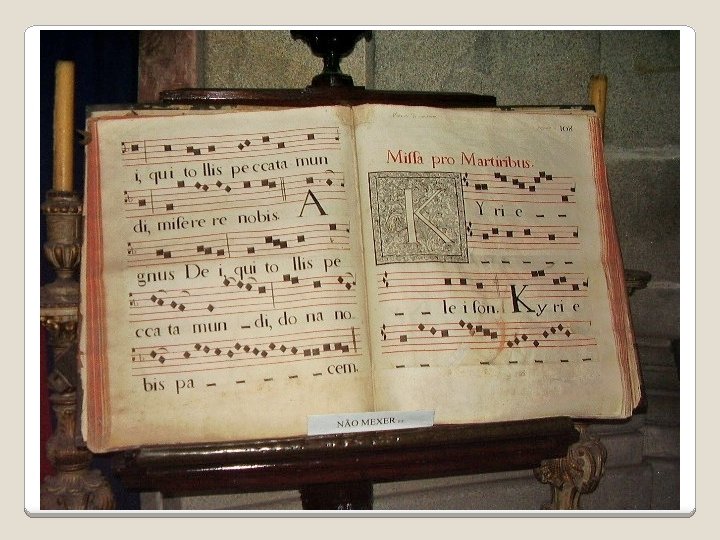 i, qui to llis peccata mun
di, miſere re nobis. A
gnus De i, qui to llis pe
cca ta mun _ di, do na no_
bis pa _ _ _ _ _ cem.
108
Miſſa pro Martiribus.
KY ri e _ _
_ _ _ _ _
_ _ le i ſon. Ky ri e
_ _ _ _ _ _
NÃO MEXER